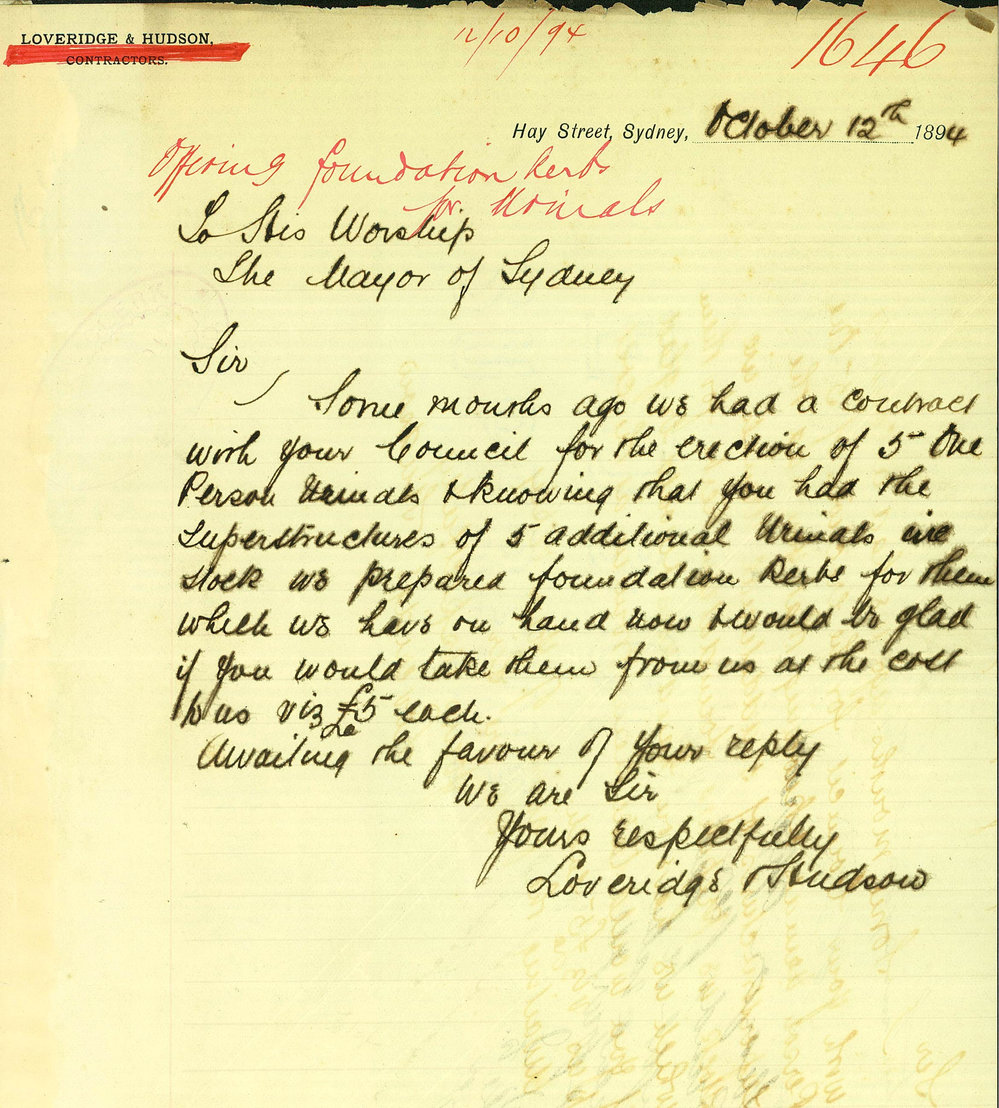 LOVERIDGE & HUDSON,
CONTRACTORS.
12/10/94
1646
Hay Street, Sydney, October 12th 1894
Offering foundation kerbs
for Urinals
To His Worship
The Mayor of Sydney
Sir
Some months ago we had a contract
with your Council for the erection of 5 One
Person Urinals & knowing that you had the
superstructures of 5 additional Urinals in
stock we prepared foundation kerbs for them
which we have on hand now & would be glad
if you would take them from us at the cost
to us viz £5 each.
Awaiting the favour of your reply
We are Sir
Yours respectfully
Loveridge & Hudson